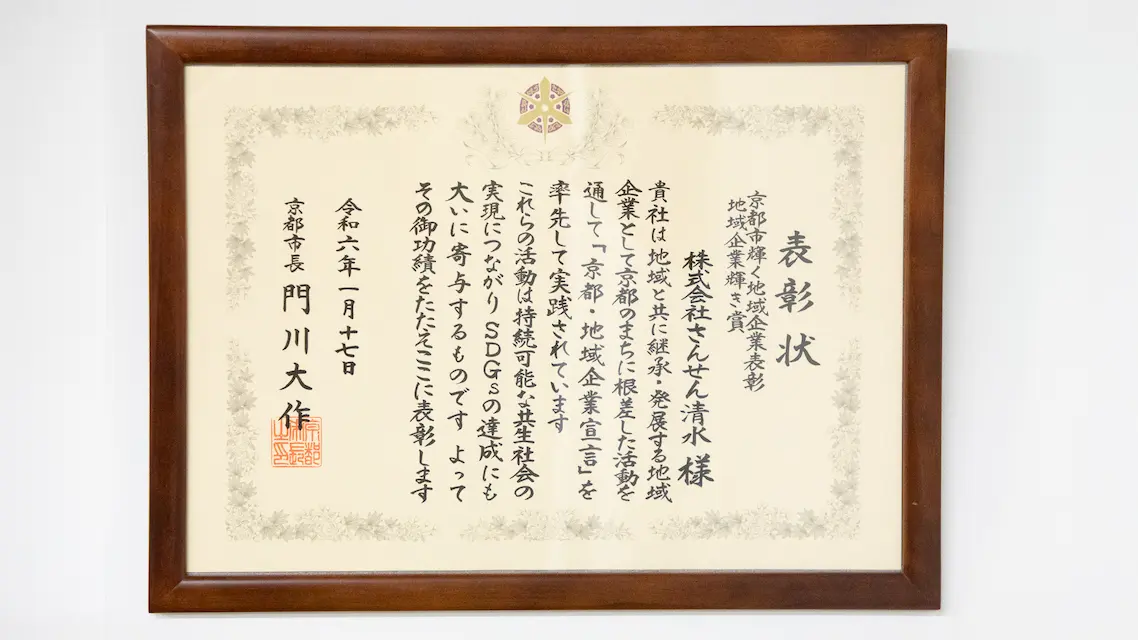 表彰状
京都市輝く地域企業表彰
地域企業輝き賞
株式会社さんせん清水様
貴社は地域と共に継承・発展する地域
企業として京都のまちに根差した活動を
通して「京都・地域企業宣言」を
率先して実践されています
これらの活動は持続可能な共生社会の
実現につながりSDGsの達成にも
大いに寄与するものです よって
その御功績をたたえここに表彰します
令和六年一月十七日
京都市長 門川大作
京都
市長
之印